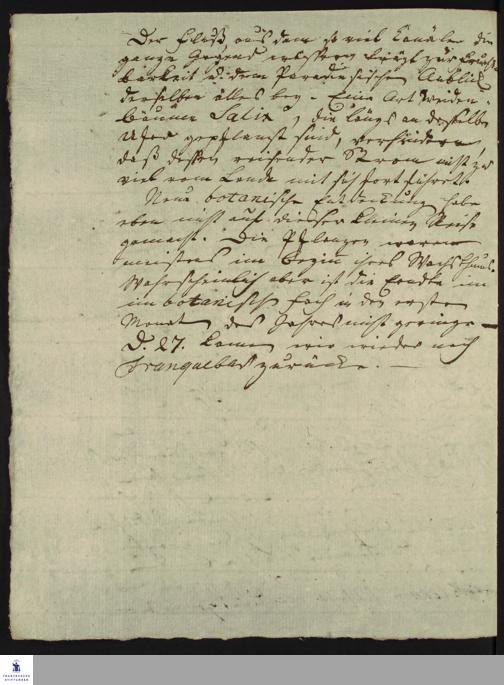 Der Fluß aus dem so viel Canäle die
ganze Gegend wässern trägt zur Frucht-
barkeit u. dem Paradiesischen Anblick
derselben alles bey. Eine Art Weiden-
bäume Salix, die längs an desselben
Ufer gepflanzt sind, verhindern
daß dessen reißender Strom nicht zu
viel vom Lande mit sich fort führet.
Neue botanische Entdeckung habe
eben nicht auf dieser kleinen Reise
gemacht. Die Pflanzen waren
meistens im Beginn ihres Wachsthums
Wahrscheinlich aber ist die Erndte im
im botanisch Fach in des ersten
Monat des Jahres nicht geringe
D. 27. kamen wir wieder nach
Tranquebar zurücke.
FRANCKESCHE
STIFTUNGEN